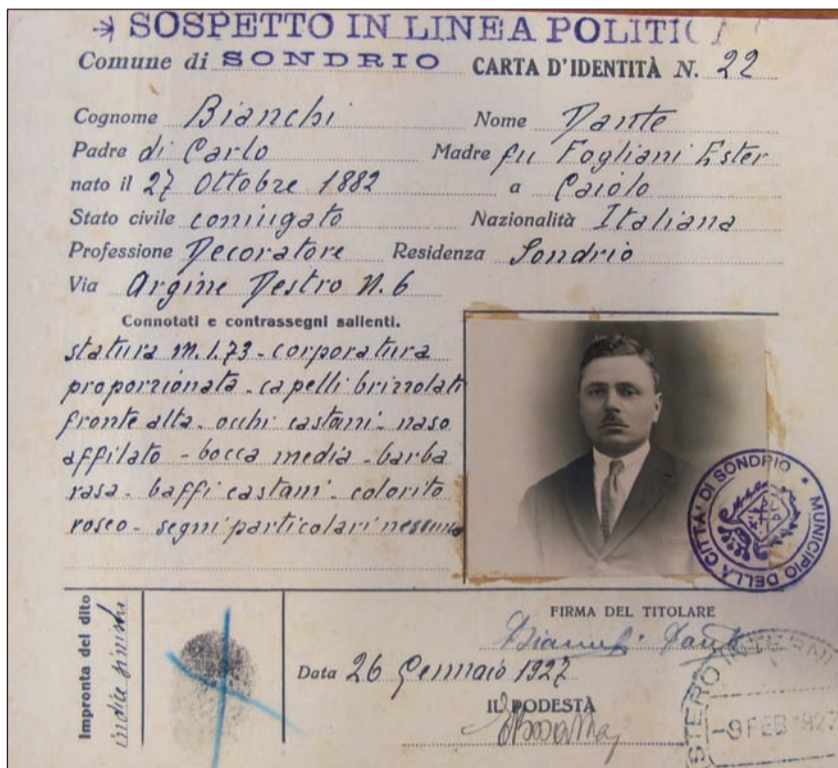 SOSPETTO IN LINEA POLITICA
Comune di SONDRIO CARTA D'IDENTITÀ N. 22
Cognome Bianchi Nome Dante
Padre di Carlo Madre fu Fogliani Ester
nato il 27 Ottobre 1882 a Caiolo
Stato civile coniugato Nazionalità Italiana
Professione Decoratore Residenza Sondrio
Via Argine Destro N. 6
Connotati e contrassegni salienti.
statura m. 1.73 - corporatura
proporzionata - capelli brizzolati
fronte alta - occhi castani - naso
affilato - bocca media - barba
rasa - baffi castani - colorito
roseo - segni particolari nessuno
MUNICIPIO DELLA CITTA' DI SONDRIO
Impronta del dito
indice sinistro
FIRMA DEL TITOLARE
Bianchi Dante
Data 26 Gennaio 1927
IL PODESTÀ
STERO INTERN
-9 FEB 1927